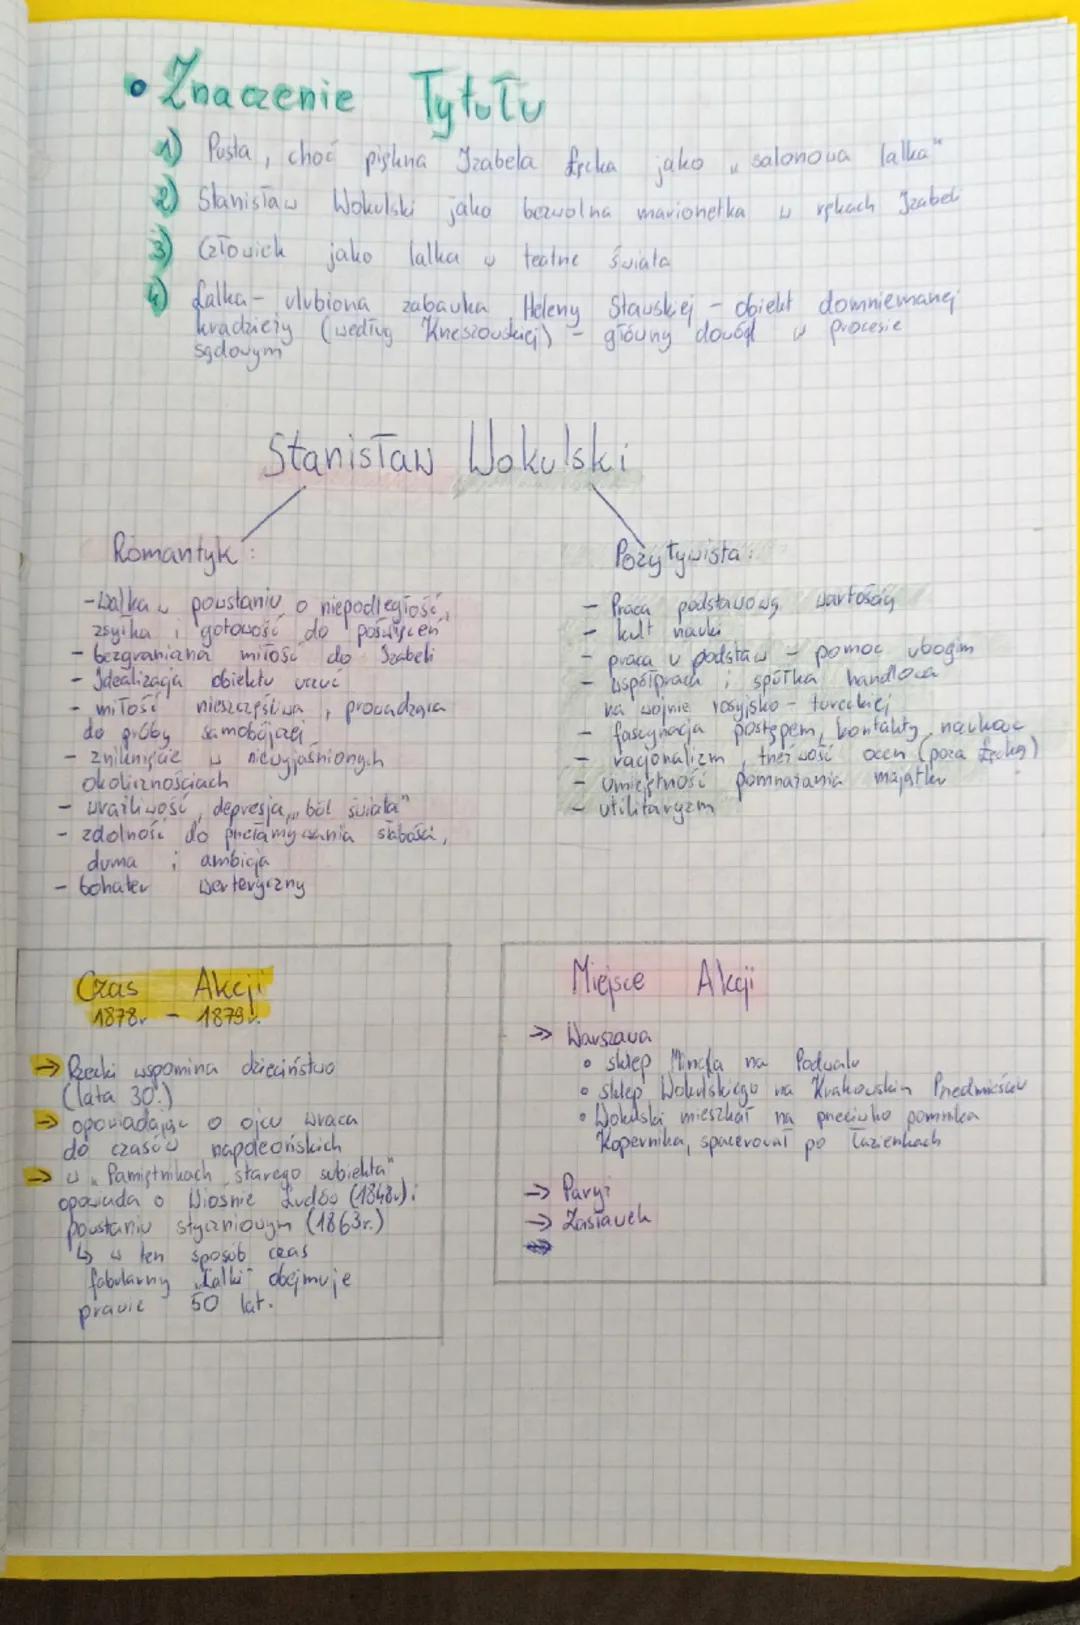 • Znaczenie Tytułu
1) Pusta, choć piękna Izabela Łęcka jako „salonowa lalka"
2) Stanisław Wokulski jako bezwolna marionetka w rękach Izabeli
3) Człowiek jako lalka w teatrze świata
4) Lalka - ulubiona zabawka Heleny Stawskiej - obiekt domniemanej
kradzieży (według Krzeszowskiej) - główny dowód w procesie
sądowym
Stanisław Wokulski
Romantyk:
- Walka w powstaniu o niepodległość,
zsyłka i gotowość do poświęceń
- bezgraniczna miłość do Izabeli
- Idealizacja obiektu uczuć
- miłość nieszczęśliwa, prowadząca
do próby samobójczej
- zniknięcie w niewyjaśnionych
okolicznościach
- wrażliwość, depresja, „ból świata"
- zdolność do przełamywania słabości,
duma i ambicja
- bohater werteryczny
Pozytywista:
- Praca podstawową wartością
- kult nauki
- praca u podstaw - pomoc ubogim
- współpraca i spółka handlowa
na wojnie rosyjsko-tureckiej
- fascynacja postępem, kontakty naukowe
- racjonalizm, trzeźwość ocen (poza Łęcką)
- umiejętność pomnażania majątku
- utilitaryzm
Czas Akcji
1878r - 1879r.
→ Rzecki wspomina dzieciństwo
(lata 30.)
→ opowiadając o ojcu wraca
do czasów napoleońskich
→ w „Pamiętnikach starego subiekta"
opowiada o Wiośnie Ludów (1848r) i
powstaniu styczniowym (1863r.)
↳ w ten sposób czas
fabularny „Lalki" obejmuje
prawie 50 lat.
Miejsce Akcji
→ Warszawa
• sklep Mincla na Podwalu
• sklep Wokulskiego na Krakowskim Przedmieściu
• Wokulski mieszkał na przeciwko pomnika
Kopernika, spacerował po Łazienkach
→ Paryż
→ Zasławek